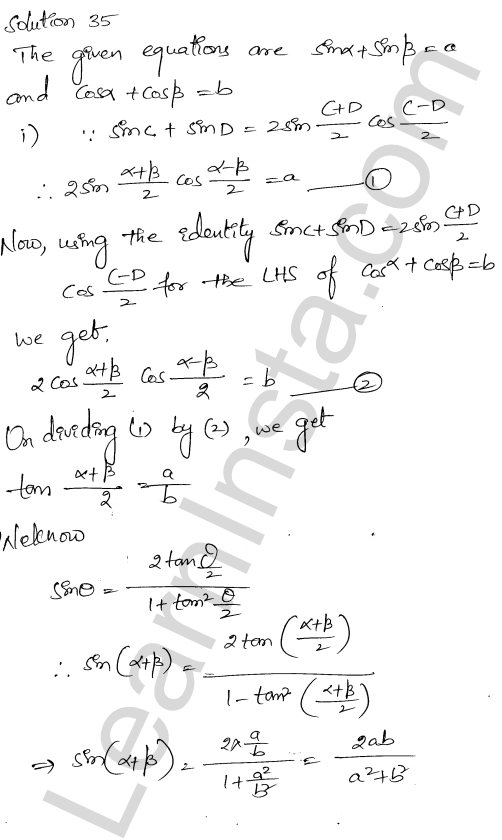 Solution 35
The given equations are sinα + sinβ = a
and cosα + cosβ = b
i) ∵ sinC + sinD = 2sin (C+D)/2 cos (C-D)/2
∴ 2sin (α+β)/2 cos (α-β)/2 = a —— ①
Now, using the identity sinC + sinD = 2sin (C+D)/2
cos (C-D)/2 for the LHS of cosα + cosβ = b
we get.
2cos (α+β)/2 cos (α-β)/2 = b —— ②
On dividing (1) by (2), we get
tan (α+β)/2 = a/b
We know
sinθ = (2tan θ/2)/(1 + tan² θ/2)
∴ sin(α+β) = (2tan((α+β)/2))/(1 - tan²((α+β)/2))
⇒ sin(α+β) = (2× a/b)/(1 + a²/b²) = 2ab/(a²+b²)
LearnInsta.com